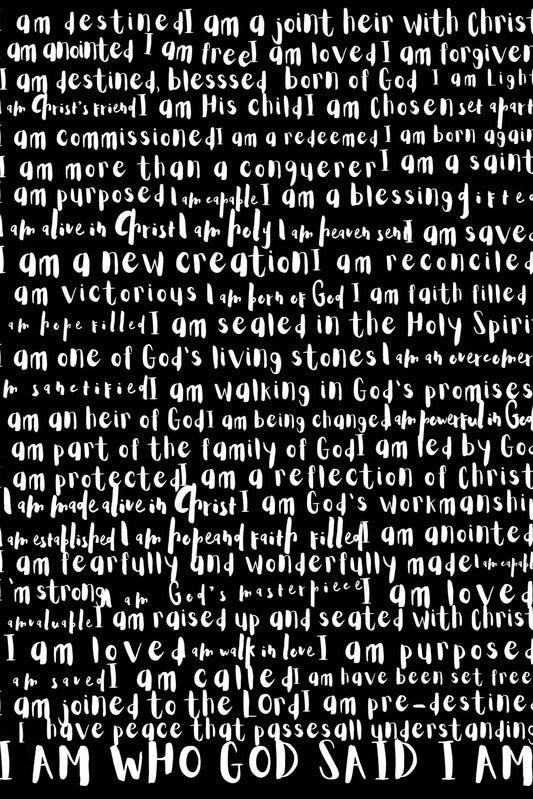 I am destinedI am a joint heir with Christ
am anointed I am freeI am lovedI am forgiven
I am destined, blesssed born of God I am Light
I am Christ's FriendI am His childI am Chosen set apart
I am commissionedI am a redeemedI am born again
I am more than a conquererI am a saint
I am purposedI am capableI am a blessinggifted
I am alive in ChristI am holy I am heaven sendI am saved
I am a new creationI am reconciled
am victorious I am born of God I am faith filled
am hope filledI am sealed in the Holy Spirit
I am one of God's living stonesI am an overcomer
am sanctifiedI am walking in God's promises
am an heir of GodI am being changedI am powerful in God
am part of the family of GodI am led by God
I am protectedI am a reflection of Christ
I am made alive in ChristI am God's workmanship
I am established I am hopeand faith filledI am anointed
I am fearfully and wonderfully madeI am capable
I'm strongI am God's masterpieceI am loved
am valuableI am raised up and seated with Christ
I am lovedI am walk in loveI am purposed
am savedI am calledI am have been set free
I am joined to the LordI am pre-destined
I have peace that passesall understanding
I AM WHO GOD SAID I AM